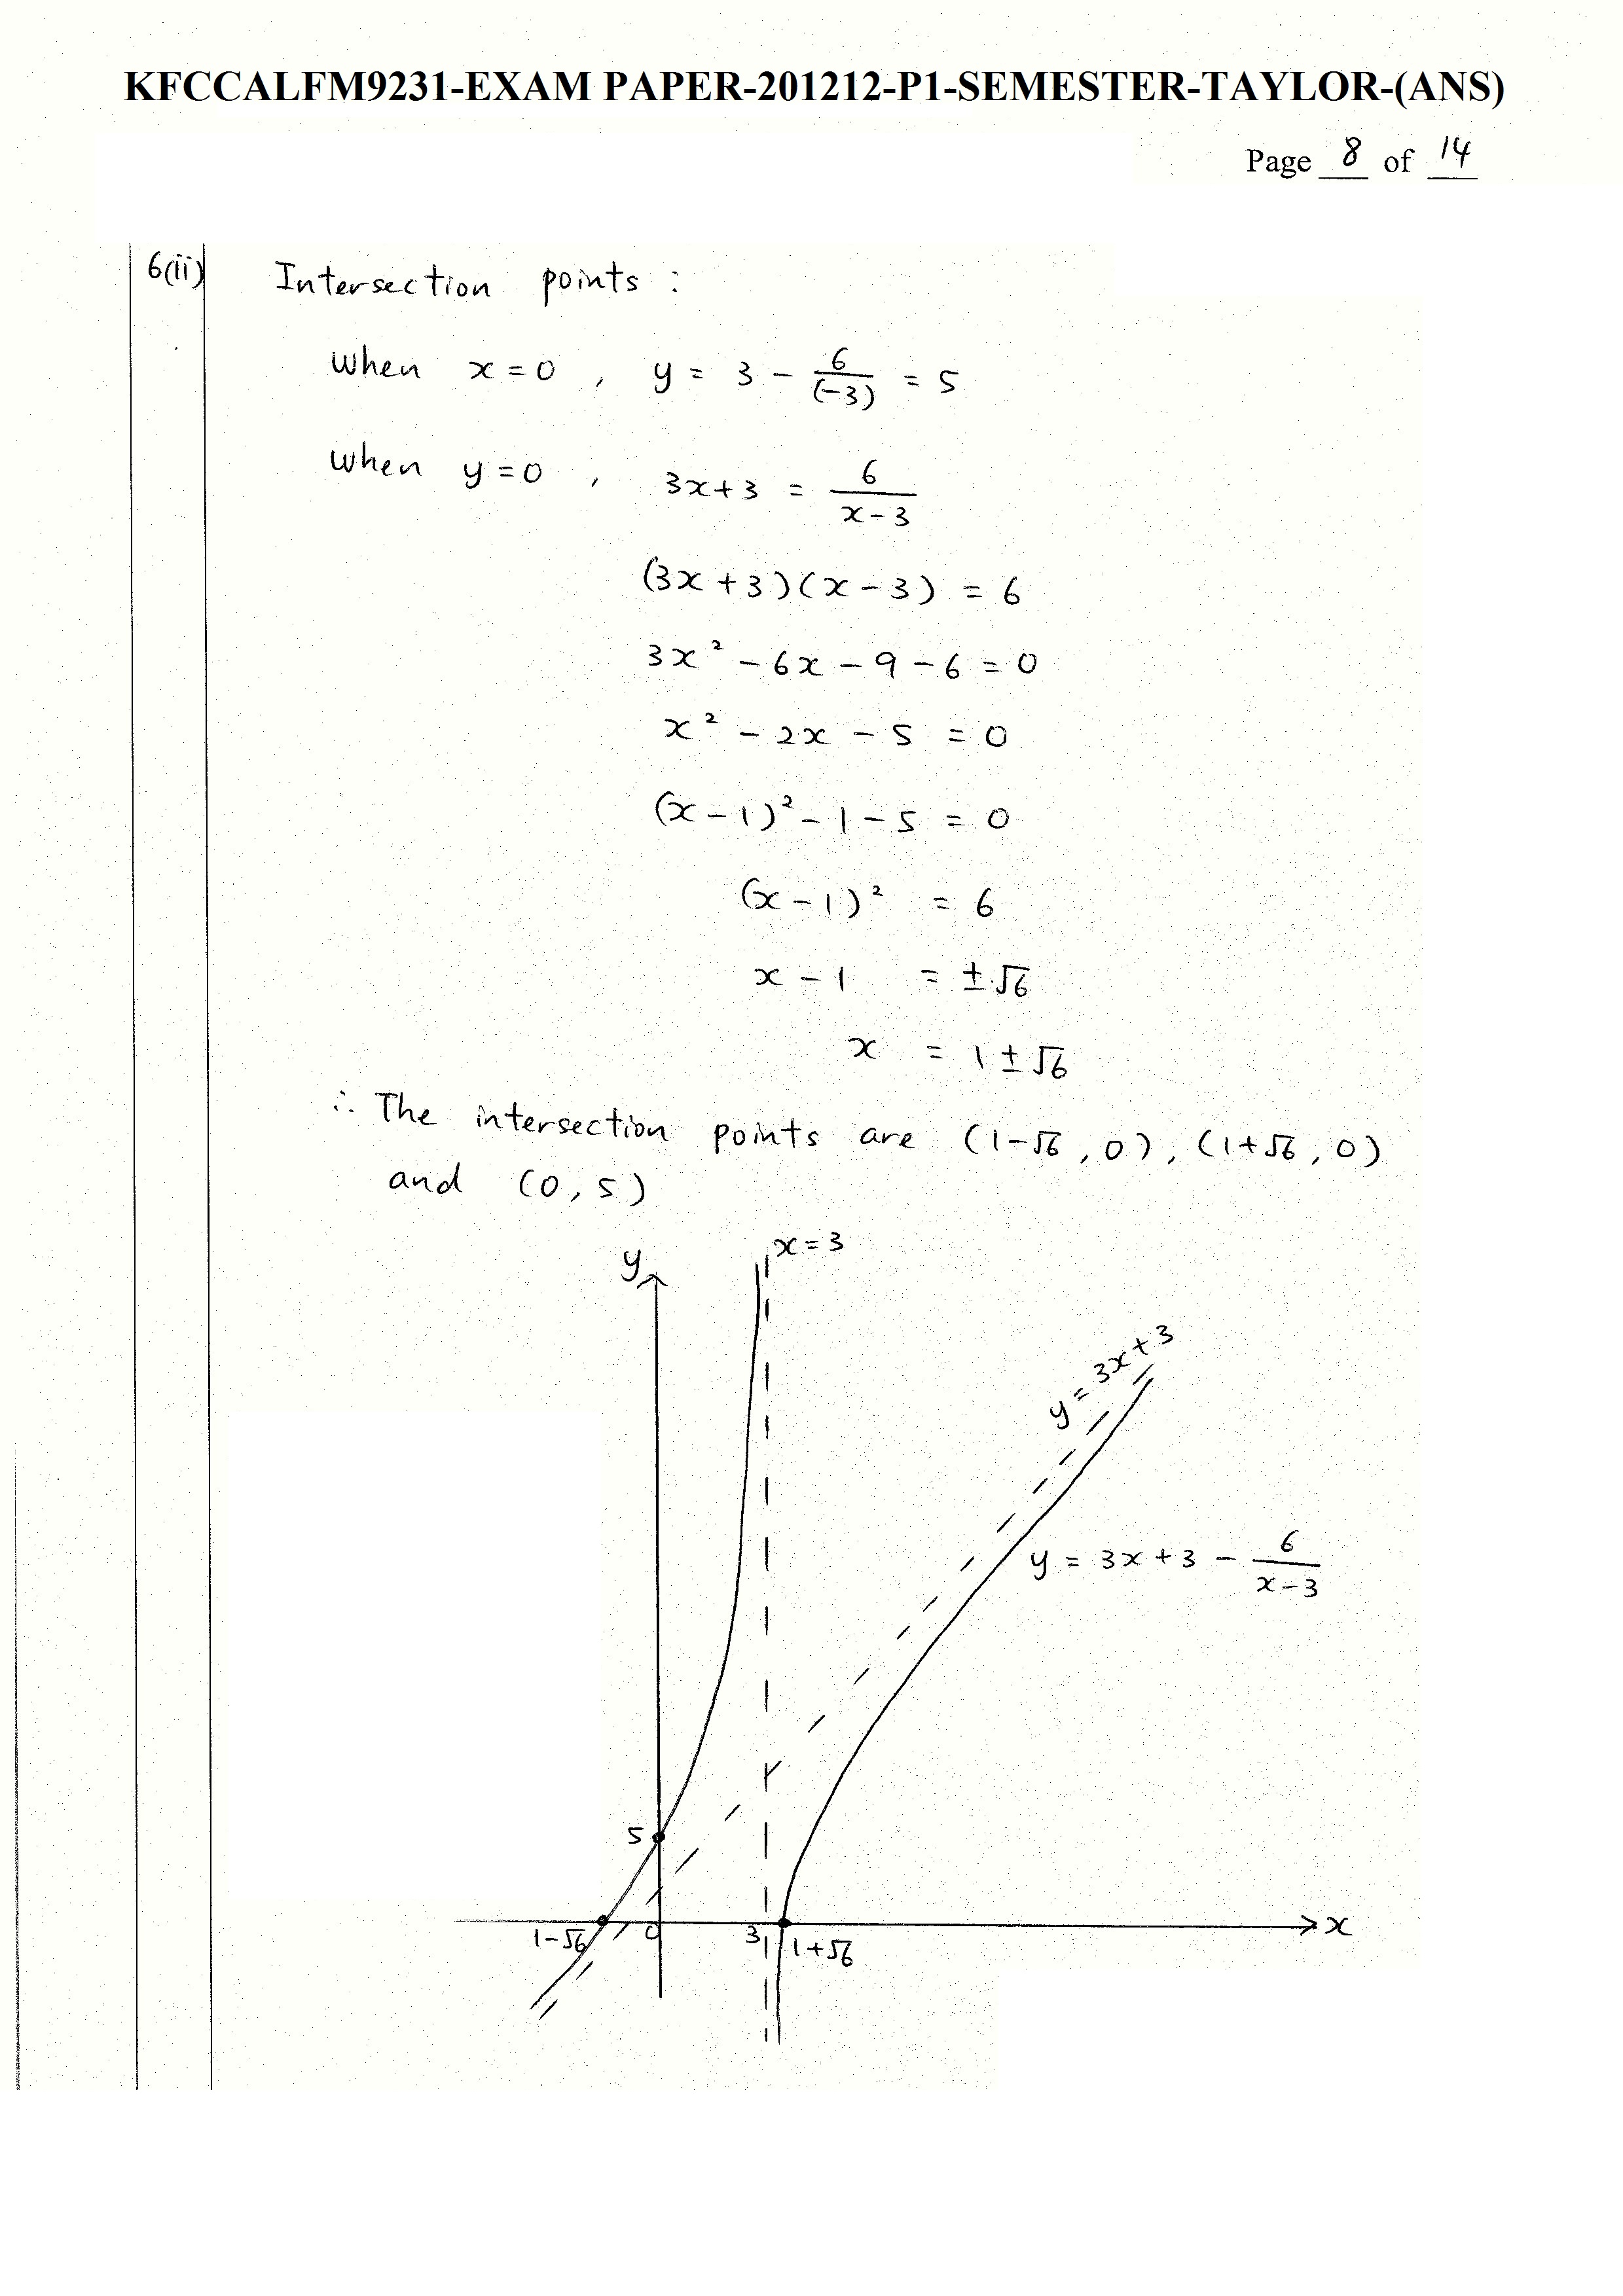 KFCCALFM9231-EXAM PAPER-201212-P1-SEMESTER-TAYLOR-(ANS)
Page 8 of 14
6(ii) Intersection points :
When x = 0 , y = 3 - 6/(-3) = 5
When y = 0 , 3x+3 = 6/(x-3)
(3x+3)(x-3) = 6
3x² - 6x - 9 - 6 = 0
x² - 2x - 5 = 0
(x-1)² - 1 - 5 = 0
(x-1)² = 6
x - 1 = ±√6
x = 1 ± √6
∴ The intersection points are (1-√6 , 0), (1+√6 , 0)
and (0, 5)
x = 3
y
y = 3x+3
y = 3x+3 - 6/(x-3)
5
1-√6 0 3 1+√6 x